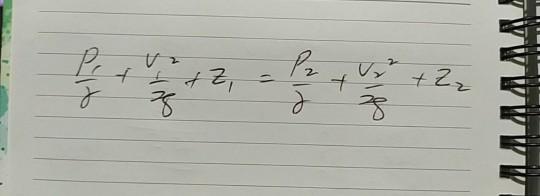 P₁/γ + V₁²/2g + Z₁ = P₂/γ + V₂²/2g + Z₂